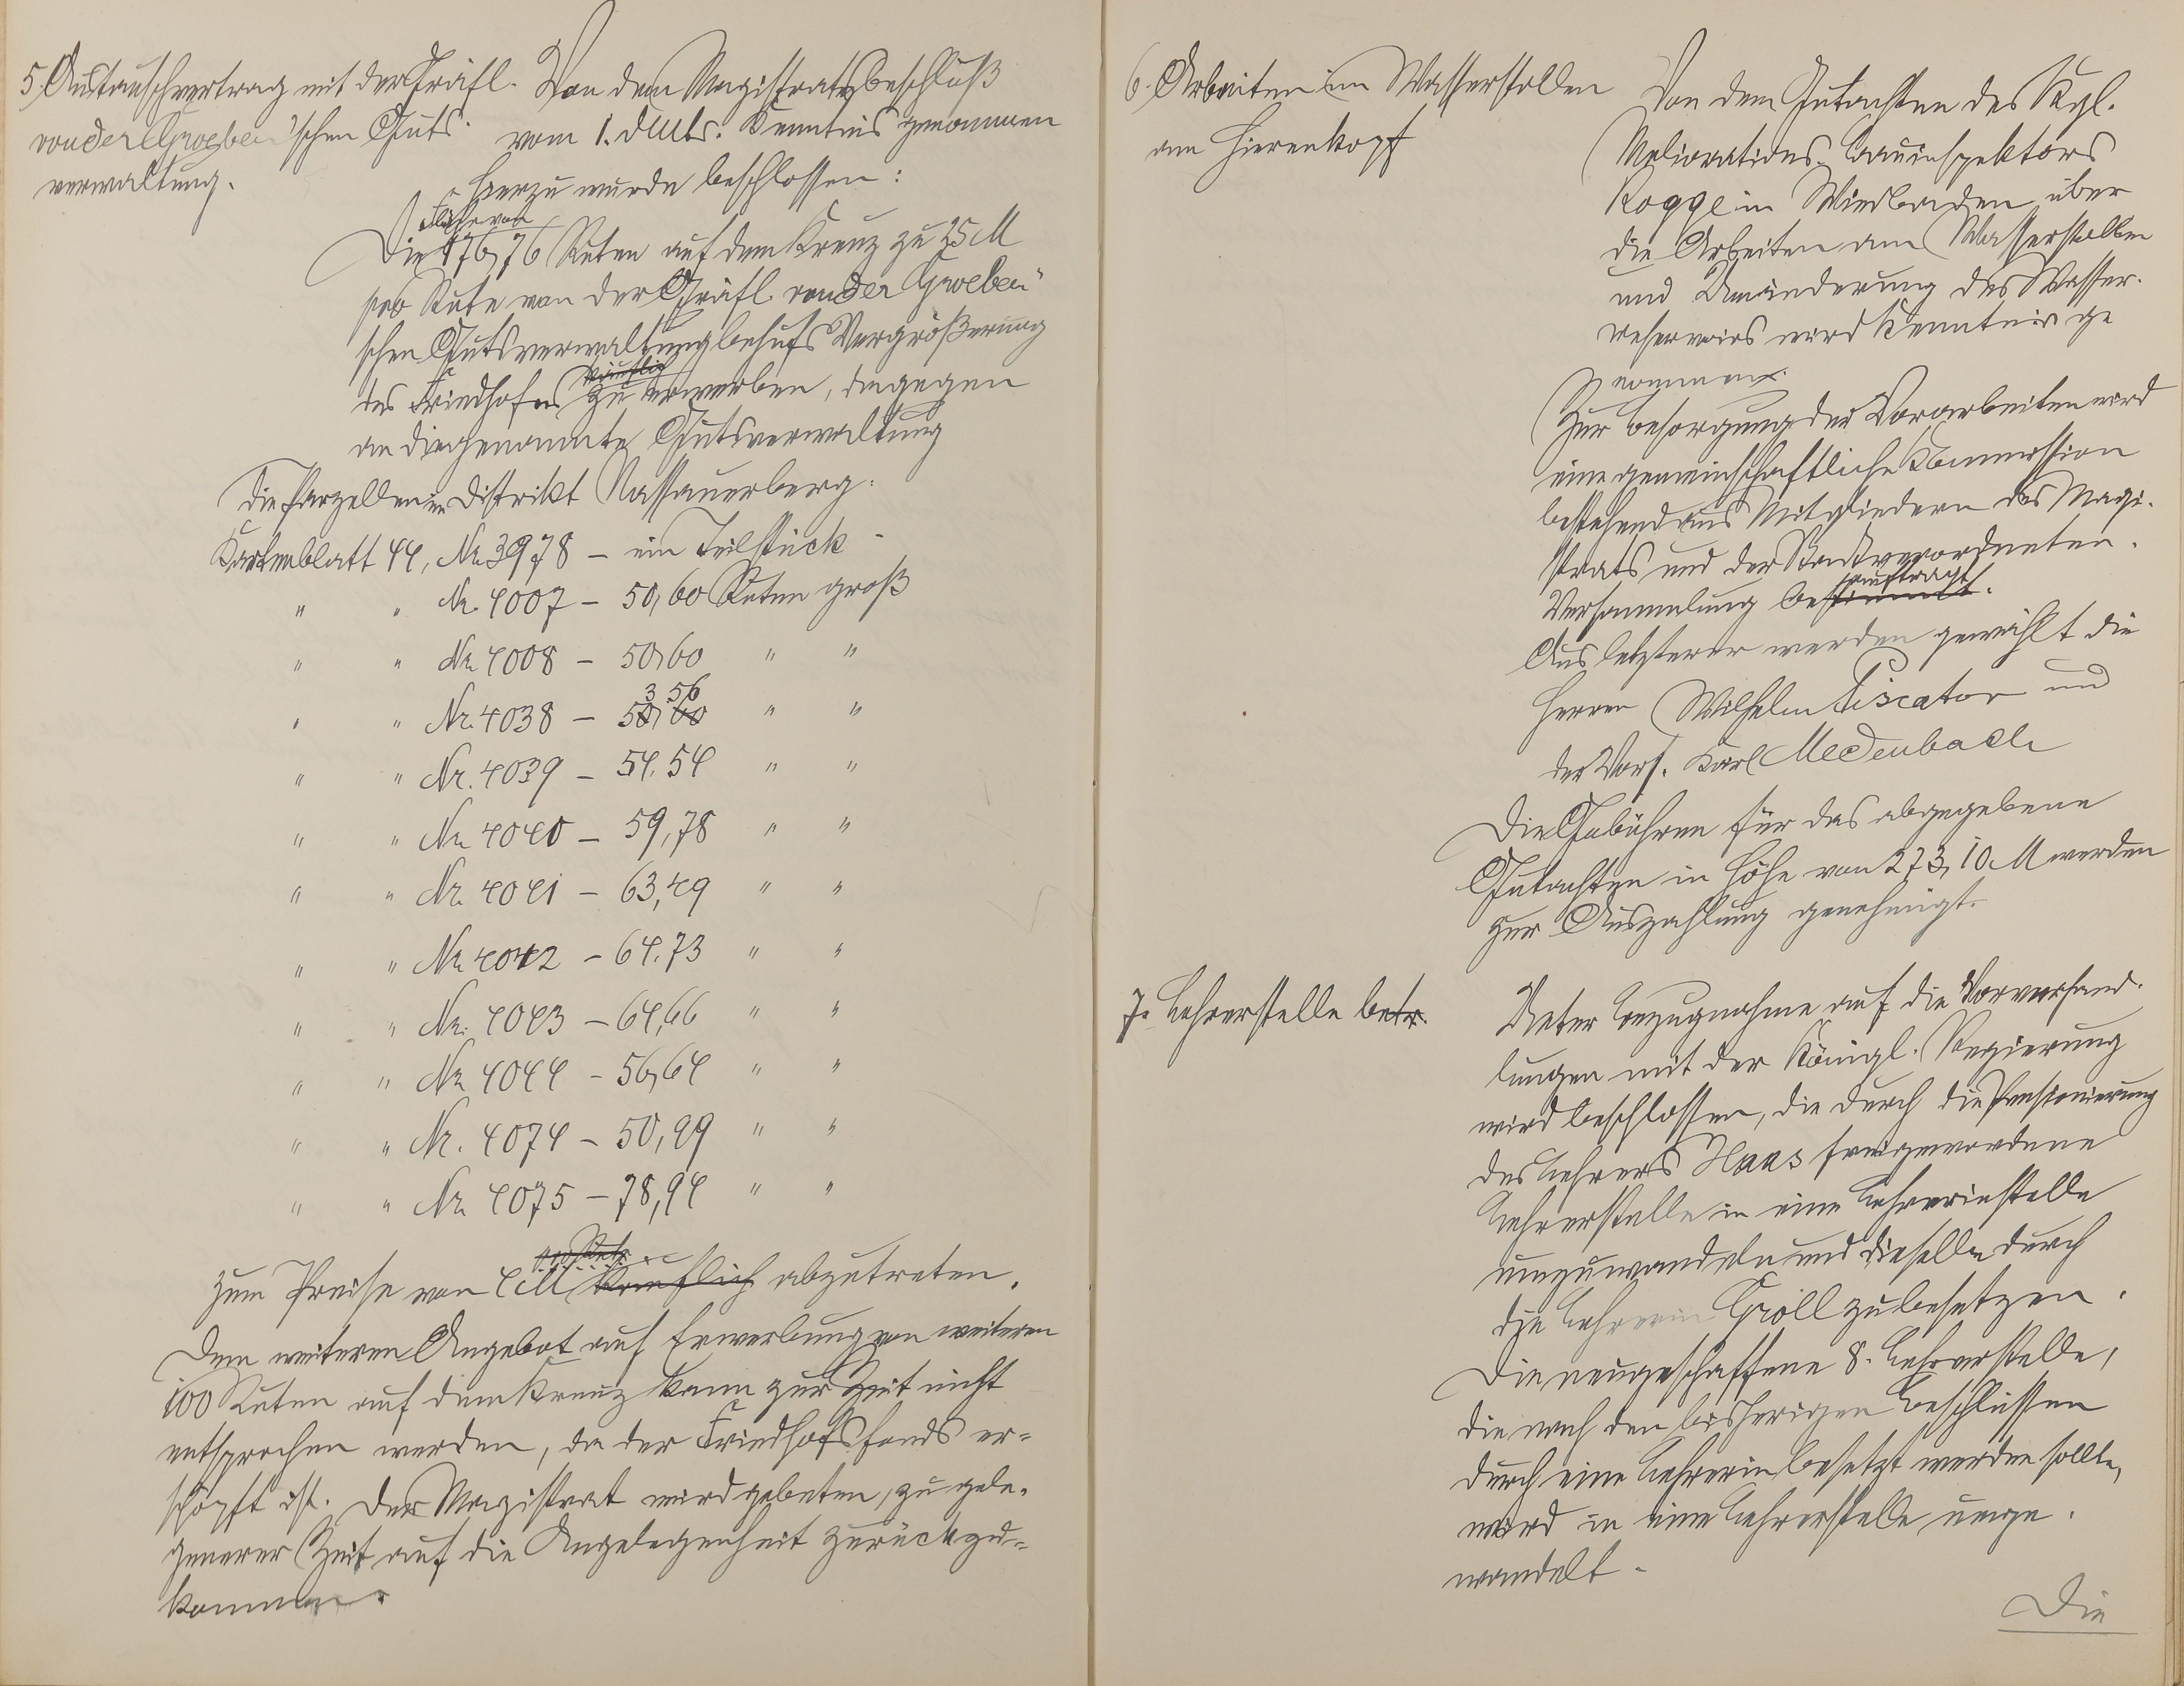 5. Austauschvertrag mit der Gräfl.
von der Groeben'schen Guts-
verwaltung.
Von dem Magistratsbeschluß
vom 1. d. Mts. Kenntnis genommen
Hierzu wurde beschlossen:
Fläche von
Die 176,76 Ruten auf dem Kreuz zu 25 M
pro Rute von der Gräfl. von der Groeben'
schen Gutsverwaltung behufs Vergrößerung
käuflich
des Friedhofes zu erwerben, dagegen
an die genannte Gutsverwaltung
die Parzellen im Distrikt Nassauerberg:
Kartenblatt 44, Nr. 3978 – ein Teilstück –
" " Nr. 4007 – 50,60 Ruten groß
" " Nr. 4008 – 50,60 " "
3 56
" " Nr. 4038 – 50,60 " "
" " Nr. 4039 – 54,54 " "
" " Nr. 4040 – 59,78 " "
" " Nr. 4041 – 63,49 " "
" " Nr. 4042 – 64,73 " "
" " Nr. 4043 – 64,66 " "
" " Nr. 4044 – 56,64 " "
" " Nr. 4074 – 50,99 " "
" " Nr. 4075 – 78,94 " "
pro Rute
zum Preise von 4 M käuflich abzutreten.
Dem weiteren Angebot auf Erwerbung von weiteren
100 Ruten auf dem Kreuz kann zur Zeit nicht
entsprochen werden, da der Friedhofsfonds er-
schöpft ist. Der Magistrat wird gebeten, zu gele-
gener Zeit auf die Angelegenheit zurückzu-
kommen.
6. Arbeiten im Wasserstollen
am Hierenkopf
Von dem Gutachten des Kgl.
Meliorations-Bauinspektors
Rogge in Wiesbaden über
die Arbeiten am Wasserstollen
und Umänderung des Wasser-
reservoirs wird Kenntnis ge
nommen.
Zur Besorgung der Vorarbeiten wird
eine gemeinschaftliche Kommission
bestehend aus Mitgliedern des Magi-
strats und der Stadtverordneten-
auftragt
Versammlung bestimmt.
Aus letzterer werden gewählt die
Herren Wilhelm Piscator und
der Vors. Karl Medenbach
Die Gebühren für das abgegebene
Gutachten in Höhe von 273,10 M werden
zur Auszahlung genehmigt.
7. Lehrerstelle betr.
Unter Bezugnahme auf die Vorverhand-
lungen mit der Königl. Regierung
wird beschlossen, die durch die Pensionierung
des Lehrers Haas freigewordene
Lehrerstelle in eine Lehrerinstelle
umzuwandeln und dieselbe durch
die Lehrerin Groll zu besetzen.
Die neugeschaffene 8. Lehrerstelle,
die nach den bisherigen Beschlüssen
durch eine Lehrerin besetzt werden sollte,
wird in eine Lehrerstelle umge-
wandelt.
Die